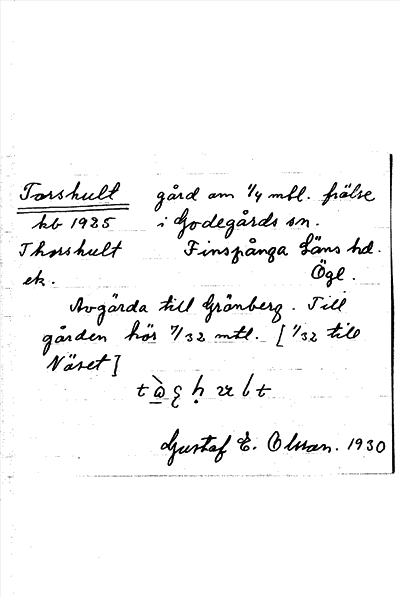 Torshult gård om 1/4 mtl. frälse
kb 1925 i Godegårds sn.
Thorshult Finspånga Läns hd.
ek. Ögl.
Avgärda till Grånberg. Till
gården hör 7/32 mtl. [1/32 till
Näset]
Gustaf E. Olsson. 1930